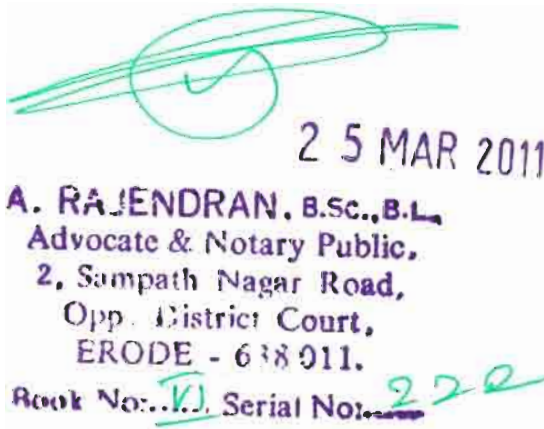 25 MAR 2011
A. RAJENDRAN, B.Sc.,B.L.,
Advocate & Notary Public,
2, Sampath Nagar Road,
Opp. District Court,
ERODE - 638 011.
Book No:..VI.. Serial No:....220